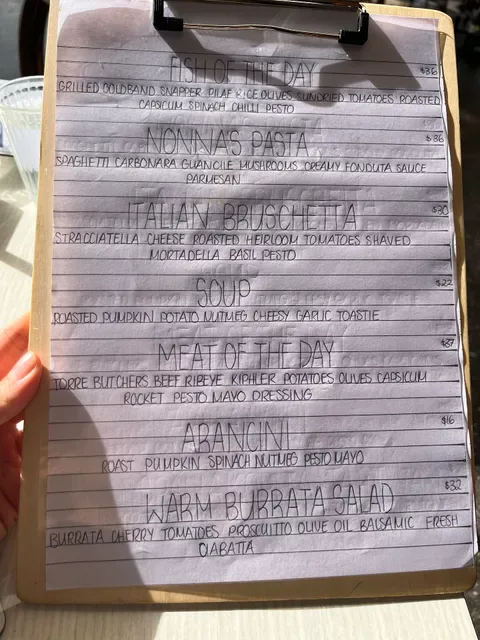 FISH OF THE DAY $36
GRILLED GOLDBAND SNAPPER PILAF RICE OLIVES SUNDRIED TOMATOES ROASTED
CAPSICUM SPINACH CHILLI PESTO
NONNA'S PASTA $36
SPAGHETTI CARBONARA GUANCILE MUSHROOMS CREAMY FONDUTA SAUCE
PARMESAN
ITALIAN BRUSCHETTA $30
STRACCIATELLA CHEESE ROASTED HEIRLOOM TOMATOES SHAVED
MORTADELLA BASIL PESTO
SOUP $22
ROASTED PUMPKIN POTATO NUTMEG CHEESY GARLIC TOASTIE
MEAT OF THE DAY
TORRE BUTCHERS BEEF RIBEYE KIPHLER POTATOES OLIVES CAPSICUM
ROCKET PESTO MAYO DRESSING
ARANCINI $16
ROAST PUMPKIN SPINACH NUTMEG PESTO MAYO
WARM BURRATA SALAD $32
BURRATA CHERRY TOMATOES PROSCUITTO OLIVE OIL BALSAMIC FRESH
CIABATTA